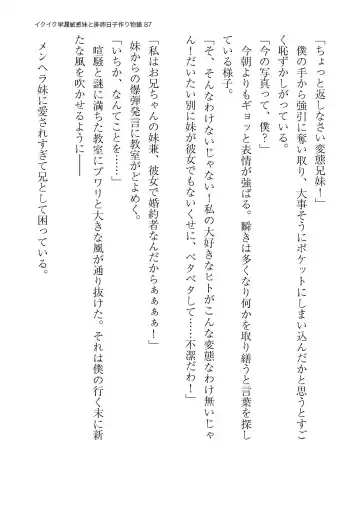 イクイク早漏敏感妹と俳徊日子作り物語 87
「ちょっと返しなさい変態兄妹！」
　僕の手から強引に奪い取り、大事そうにポケットにしまい込んだかと思うとすご
く恥ずかしがっている。
「今の写真って、僕？」
　今朝よりもギョッと表情が強ばる。瞬きは多くなり何かを取り繕うと言葉を探し
ている様子。
「そ、そんなわけないじゃない！私の大好きなヒトがこんな変態なわけ無いじゃ
ん！だいたい別に妹が彼女でもないくせに、ベタベタして……不潔だわ！」
「私はお兄ちゃんの妹兼、彼女で婚約者なんだからぁぁぁぁ！」
　妹からの爆弾発言に教室がどよめく。
「いちか、なんてことを……」
　喧騒と謎に満ちた教室にブワリと大きな風が通り抜けた。それは僕の行く末に新
たな風を吹かせるように――
メンヘラ妹に愛されすぎて兄として困っている。